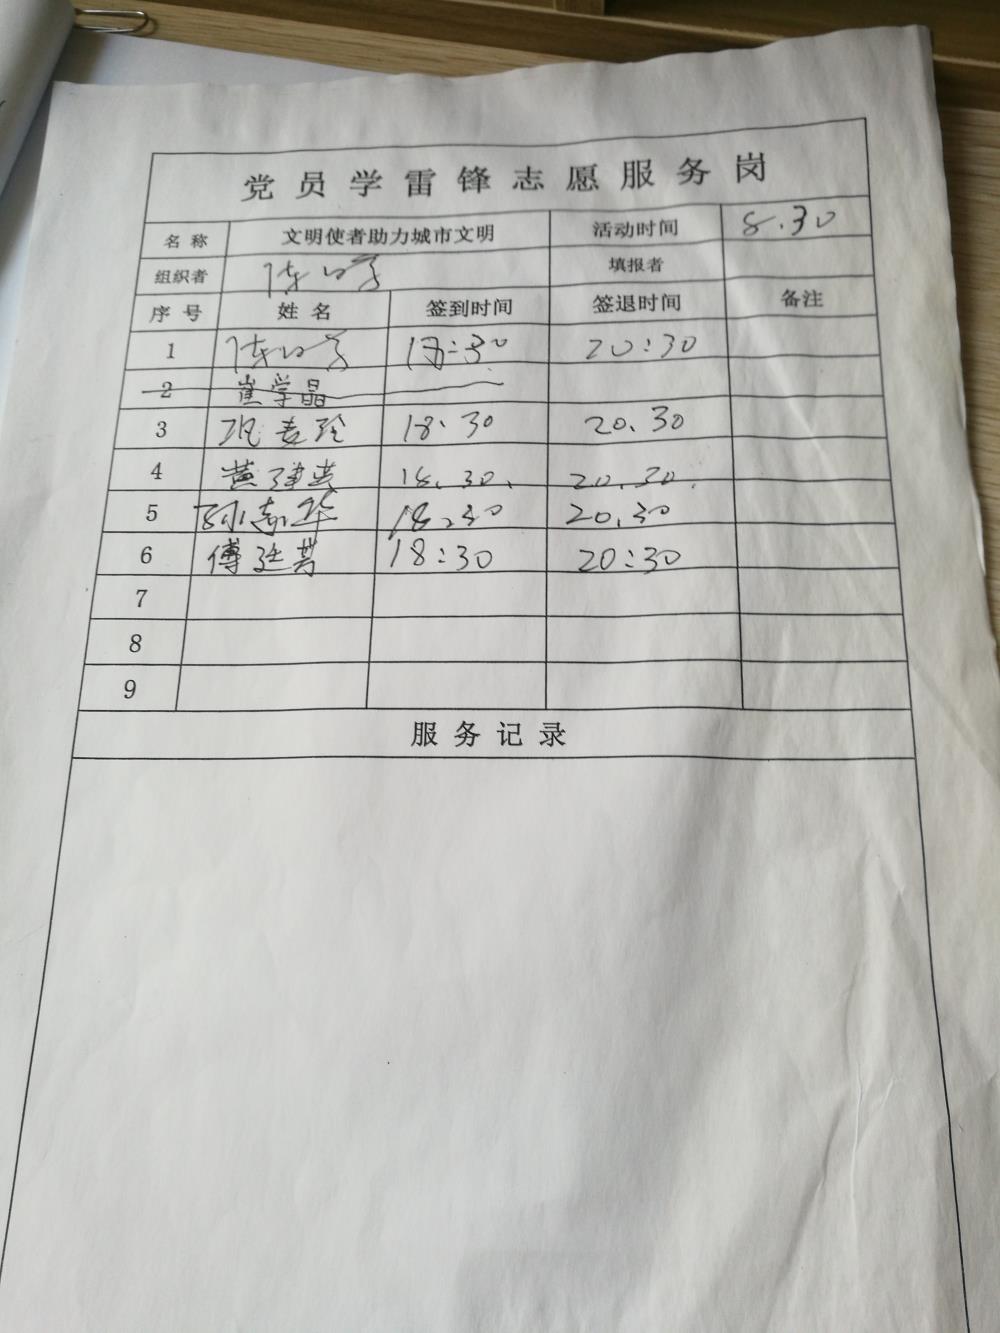 党员学雷锋志愿服务岗
名称 文明使者助力城市文明 活动时间 8.30
组织者 填报者
序号 姓名 签到时间 签退时间 备注
1 20:30
2 崔学晶
3 18:30 20.30
4 黄建英 18.30. 20.30.
5 孙志华 18.30 20.30
6 傅廷英 18:30 20:30
7
8
9
服务记录